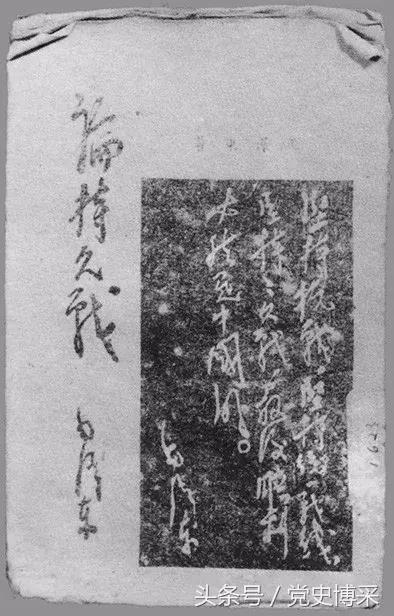 論持久戰
毛澤東
堅持抗戰，堅持統一戰線，
堅持々久戰，最後勝利
必然是中國的。
毛澤東
头条号／党史博采